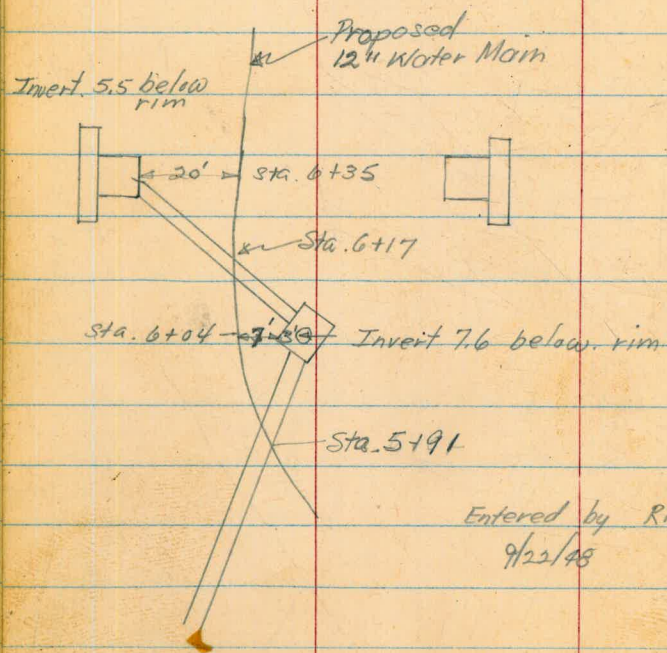 Proposed
12" Water Main
Invert 5.5 below
rim
20' Sta. 6+35
Sta. 6+17
Sta. 6+04 7' 3' Invert 7.6 below rim
Sta. 5+91
Entered by
9/22/48